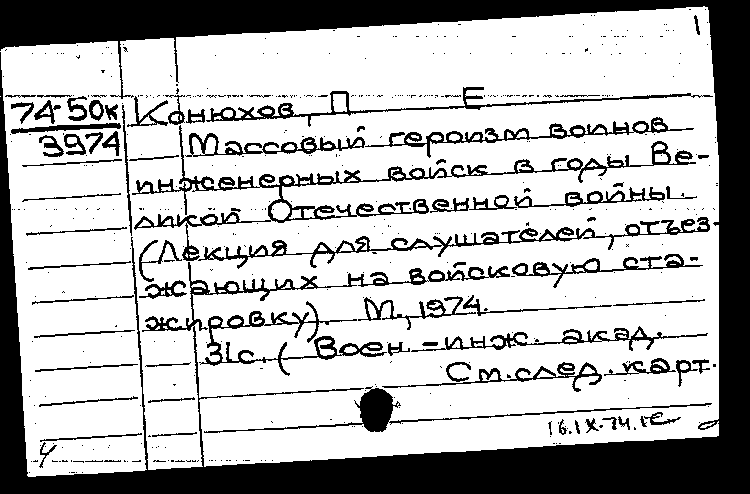 1
74-50к
3974
Конюхов, П Е
Массовый героизм воинов
инженерных войск в годы Ве-
ликой Отечественной войны.
(Лекция для слушателей, отъез-
жающих на войсковую ста-
жировку). М., 1974.
31с. (Воен.-инж. акад.
См.след.карт.
16.IX-74.
У